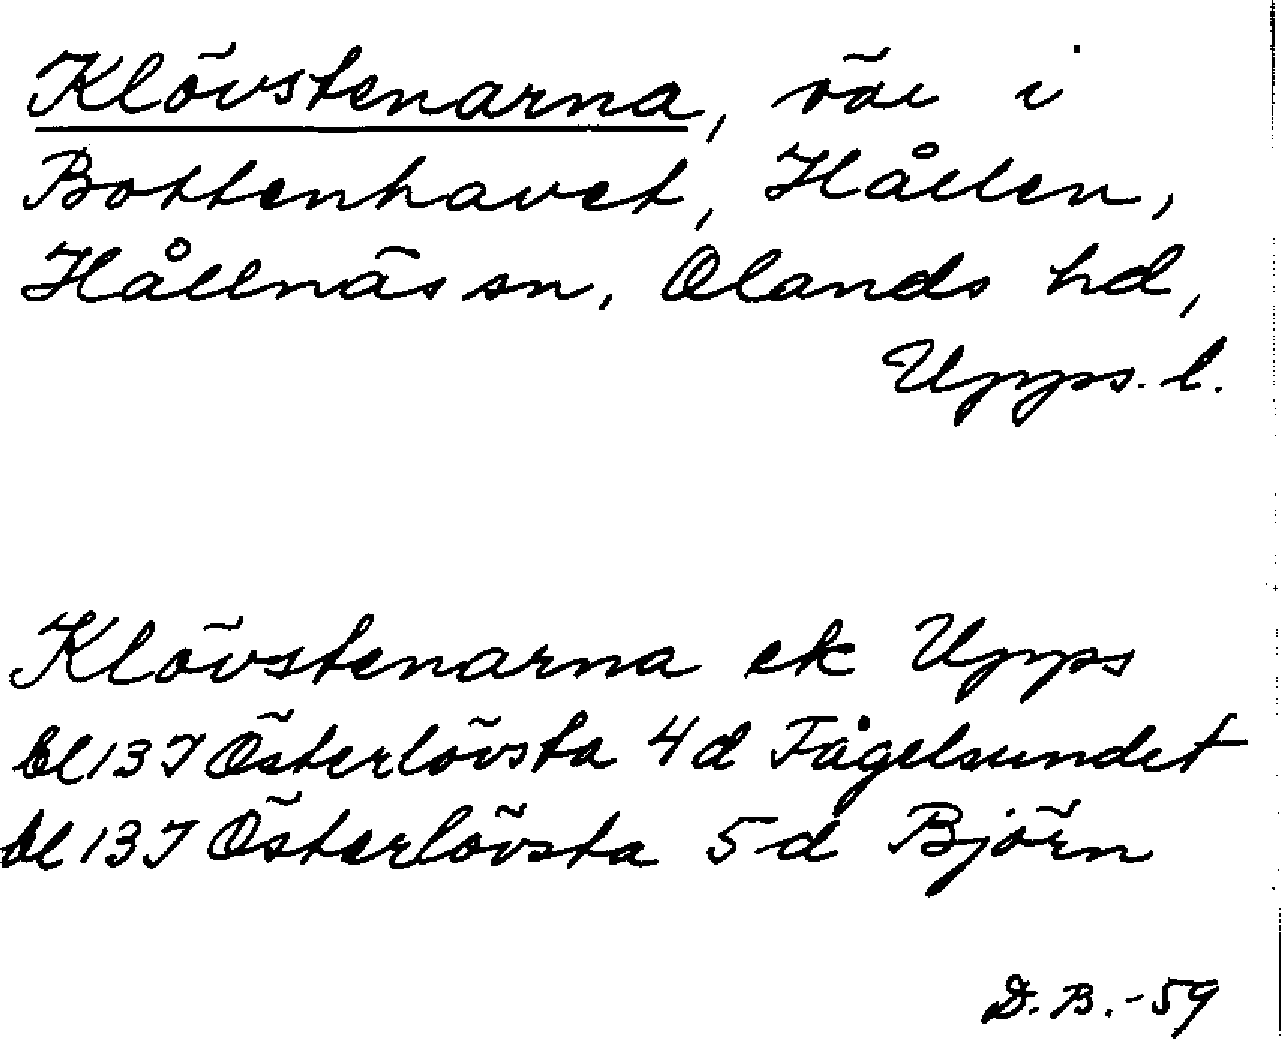 Klövstenarna, röe i
Bottenhavet, Hållen,
Hållnäs sn, Olands hd,
Upps. l.
Klövstenarna ek Upps
bl 13 I Österlövsta 4 d Fågelsundet
bl 13 I Österlövsta 5 d Björn
D. B. -59